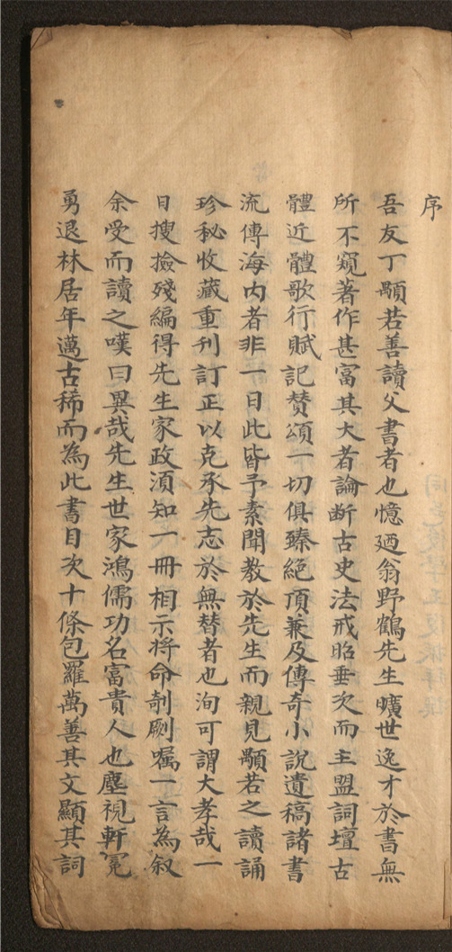 序
吾友丁顒若善讀父書者也憶廼翁野鶴先生曠世逸才於書無
所不窺著作甚富其大者論斷古史法戒昭垂次而主盟詞壇古
體近體歌行賦記贊頌一切俱臻絕頂兼及傳奇小說遺稿諸書
流傳海內者非一日此皆予素聞教於先生而親見顒若之讀誦
珍秘收藏重刊訂正以克承先志於無替者也洵可謂大孝哉一
日搜撿殘編得先生家政湏知一冊相示将命剞劂囑一言為叙
余受而讀之嘆曰異哉先生世家鴻儒功名富貴人也塵視軒冕
勇退林居年邁古稀而為此書目次十條包羅萬善其文顯其詞